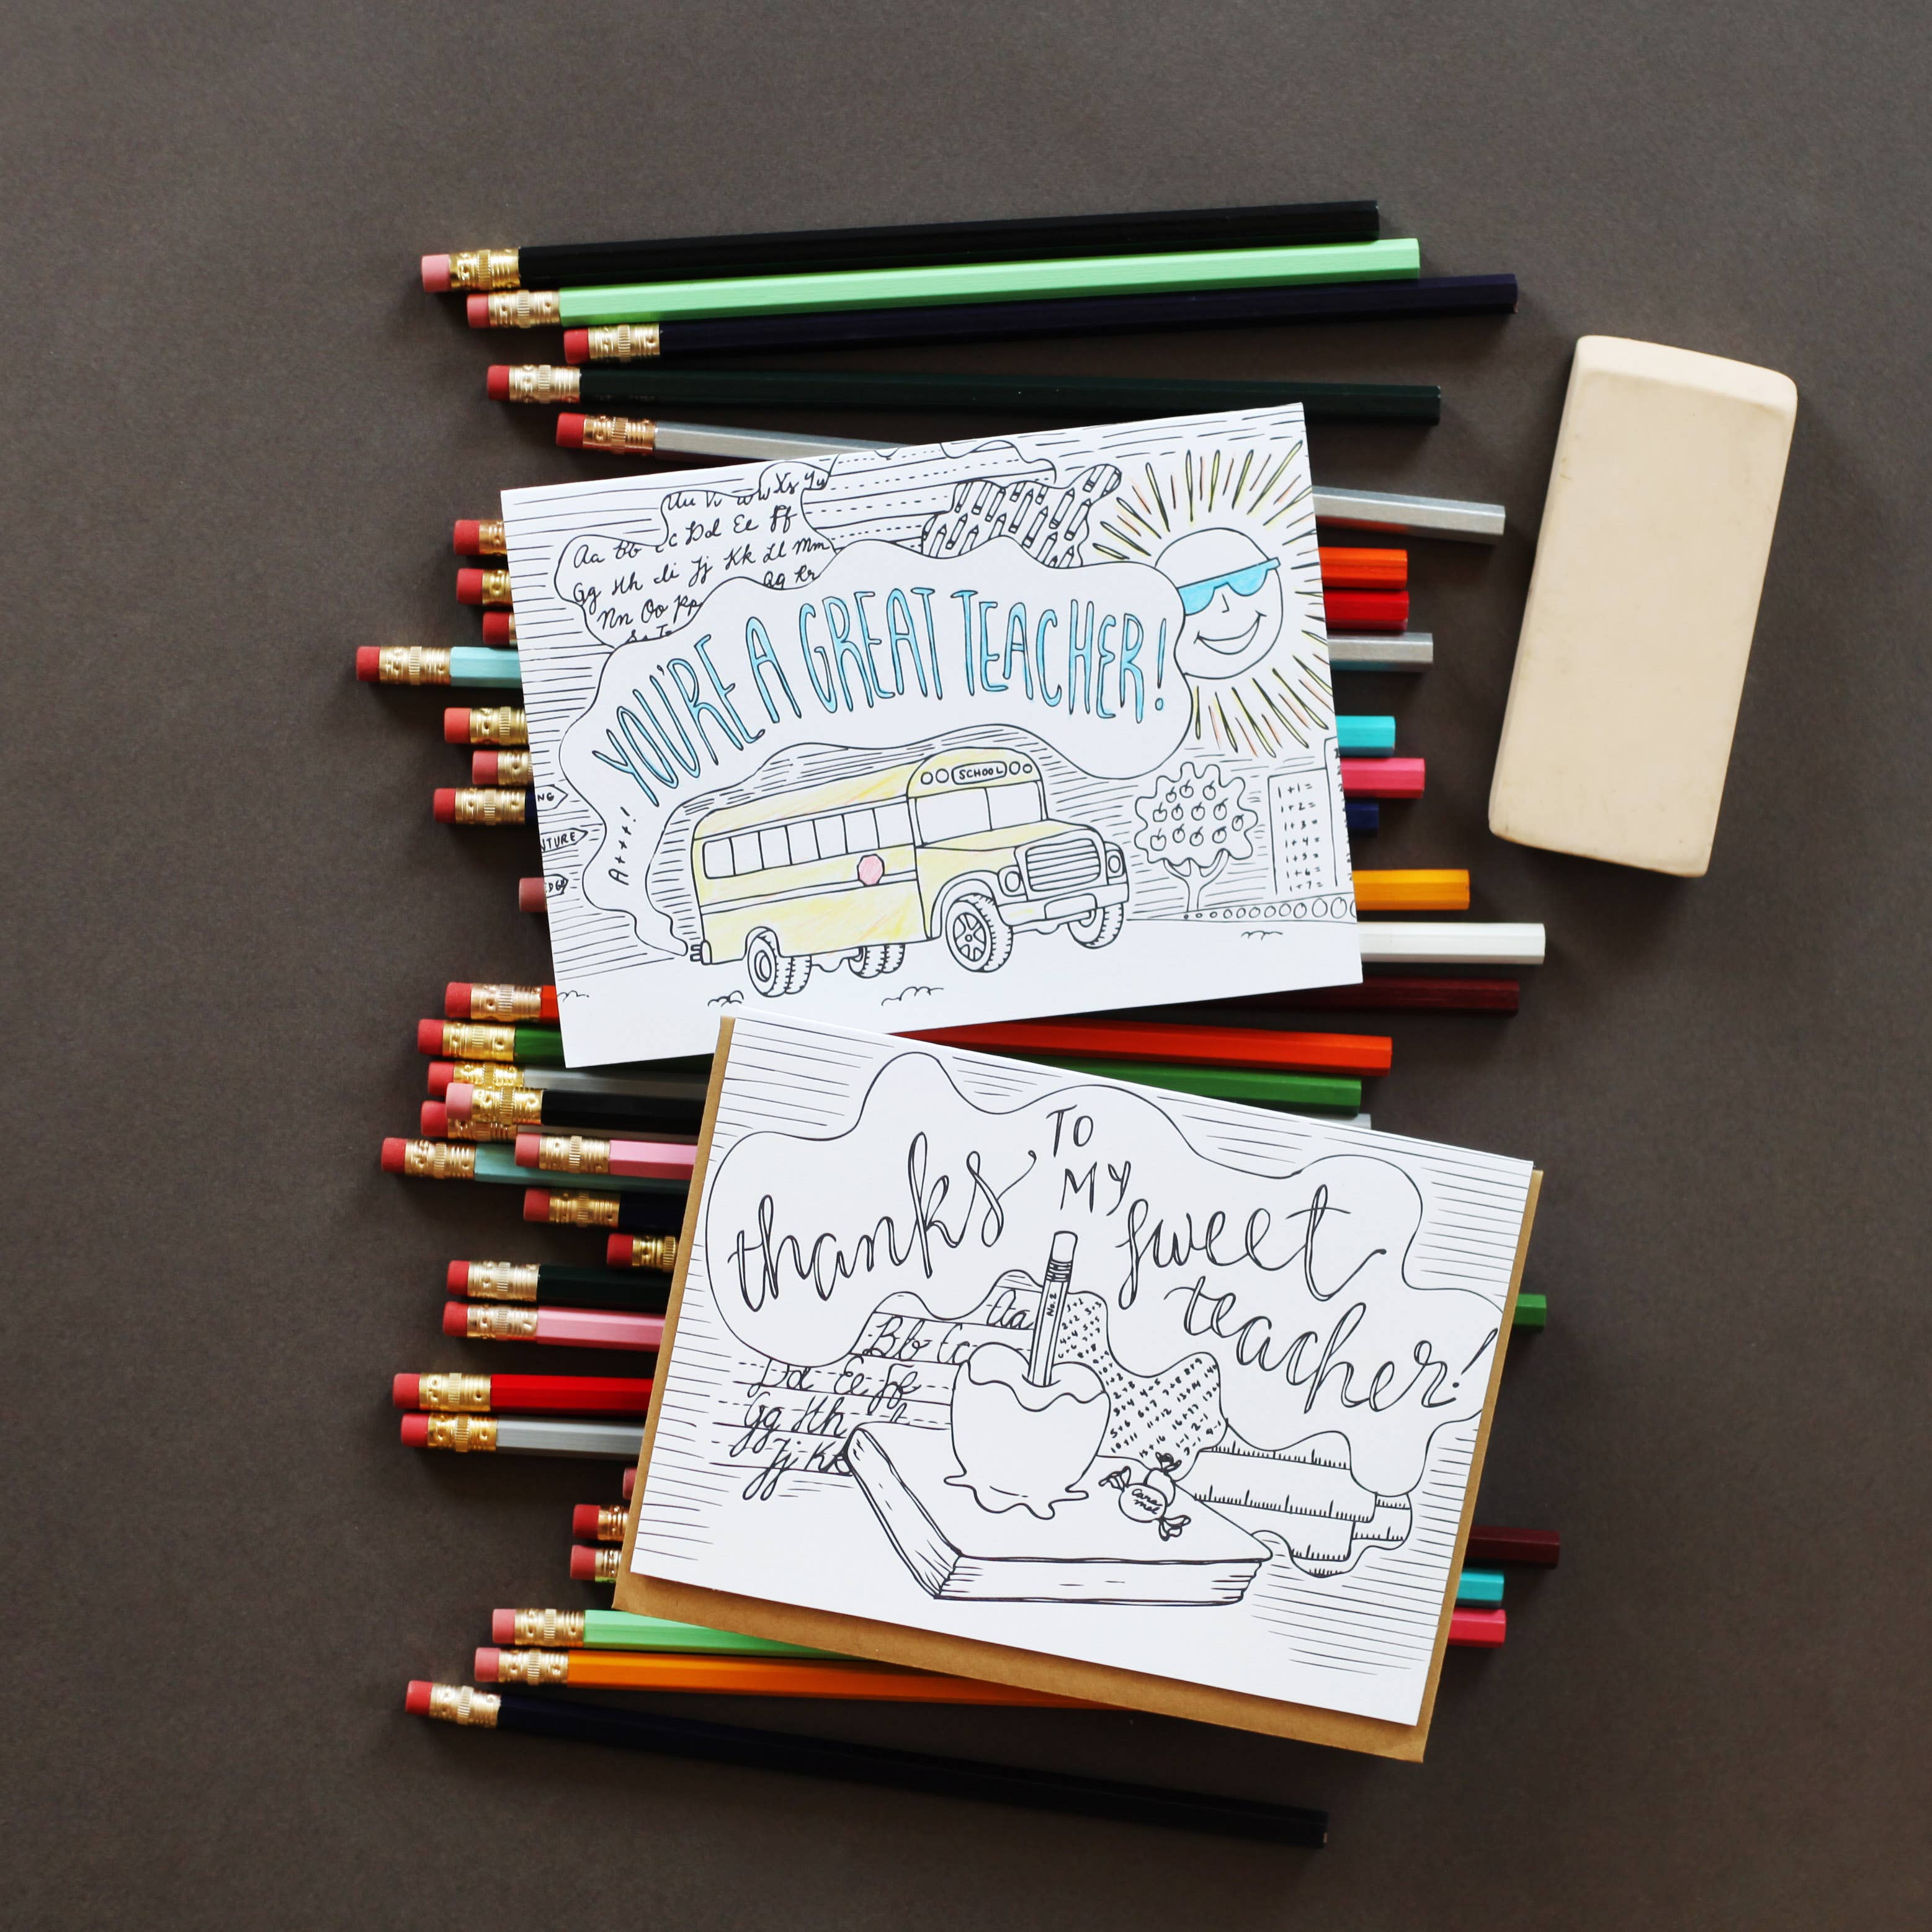 Uu Vv Ww Xx Yy
Cc Dd Ee Ff
Aa Bb
Gg Hh Ii Jj Kk Ll Mm
Nn Oo Pp Qq Rr
Ss T
YOU'RE A GREAT TEACHER!
A++++!
SCHOOL
NG
NTURE
EDGE
1+1=
1+2=
1+3=
1+4=
1+5=
1+6=
1+7=
thanks TO
MY
sweet
teacher!
No.2
Aa
Bb Cc
Dd Ee Ff
Gg Hh
Jj Kk
Cara
mel